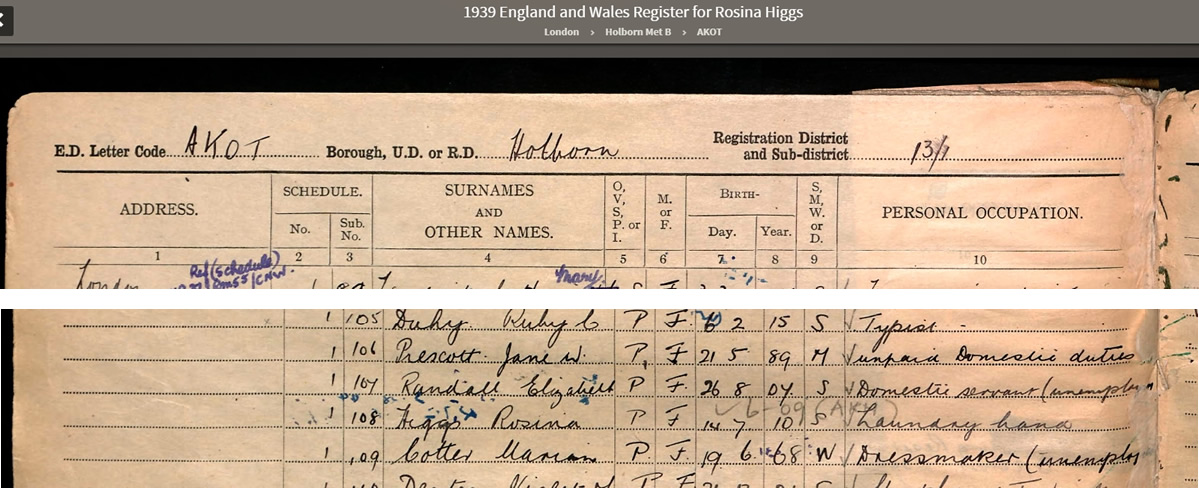 1939 England and Wales Register for Rosina Higgs
London > Holborn Met B > AKOT
E.D. Letter Code AKOT Borough, U.D. or R.D. Holborn Registration District and Sub-district 13/1
ADDRESS. SCHEDULE. No. Sub. No. SURNAMES AND OTHER NAMES. O, V, S, P. or I. M. or F. BIRTH- Day. Year. S, M, W. or D. PERSONAL OCCUPATION.
1 2 3 4 5 6 7 8 9 10
London Ref (schedule) Mary
1 105 Ruby C P F 6 2 15 S Typist
1 106 Prescott Jane W. P F 21 5 89 M unpaid Domestic duties
1 107 Randall Elizabeth P F 26 8 07 S Domestic servant (unemploy
1 108 Higgs Rosina P F 14 7 10 S Laundry hand
1 109 Cotter Marian P F 19 6 68 W Dressmaker (unemploy